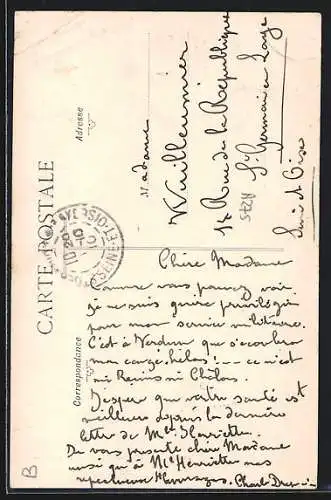 CARTE POSTALE
Correspondance
Adresse
Madame
Vuilleumier
14 Rue de la République
St Germain en Laye
Seine et Oise
A275
SEINE-ET-OISE
Chère Madame
comme vous pouvez voir
je ne suis guère privilégié
pour mon service militaire.
C'est à Verdun que s'écoulera
mon congé, hélas! ... ce n'est
ni Reims ni Châlons.
J'espère que votre santé est
meilleure depuis la dernière
lettre de Mlle Henriette.
Je vous présente chère Madame
ainsi qu'à Mlle Henriette mes
respectueux Hommages. Charl
B